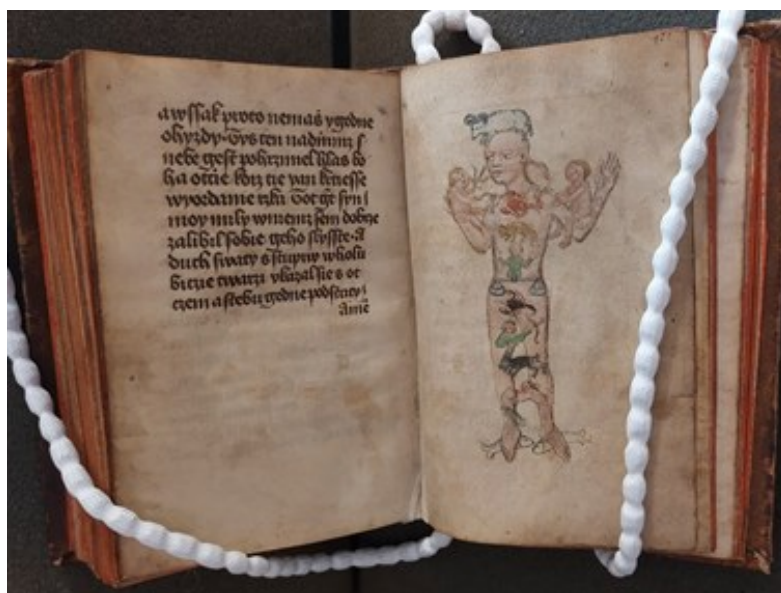 awssak proto nemaš ygedne
ohyzdy Gys ten nadimz s
nebe gest pohrzmiel hlas bo
ha otcie korz tie yan krtiesse
wyordanie rzka Toť gť syn
moy mily wniemz sem dobrze
zalibil sobie geho slysste A
duch swaty s stupiw wholu
biczie twarzi vkazal sie s ot
czem a stebu gedne podstaty
Amē